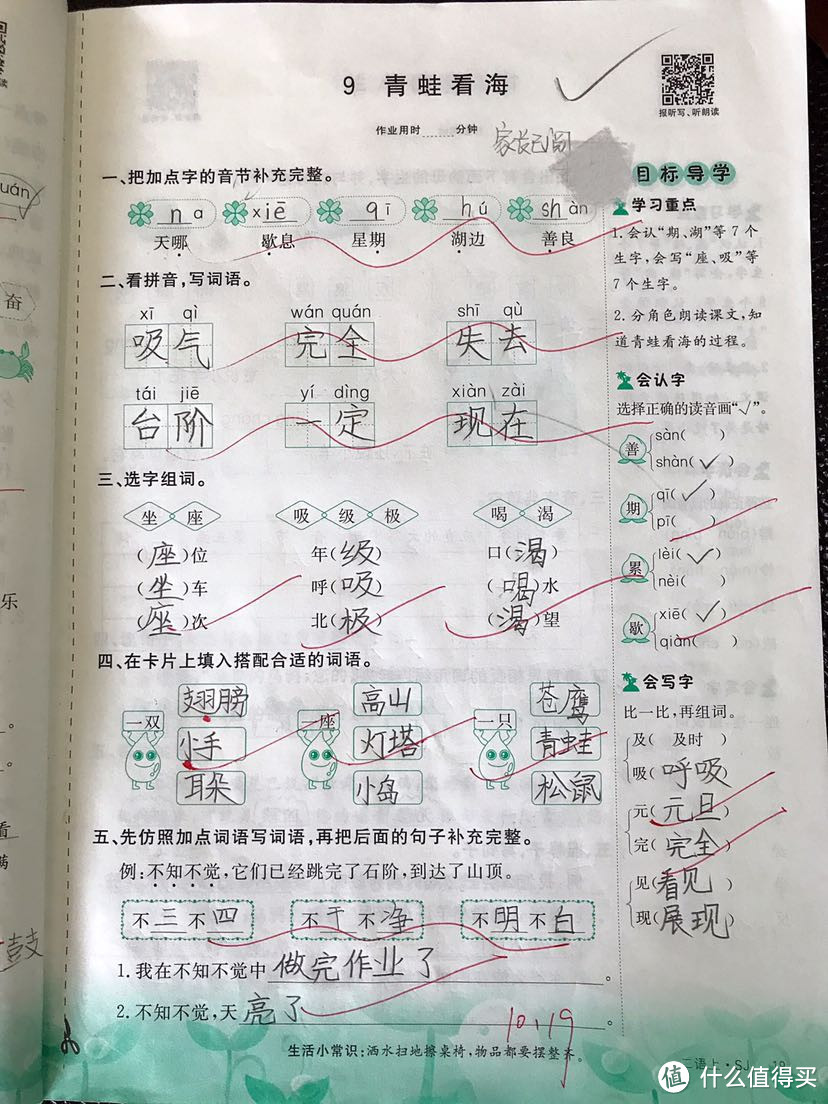 9 青蛙看海
报听写、听朗读
作业用时 分钟
家长已阅
一、把加点字的音节补充完整。
na xiē qī hú shàn
天哪 歇息 星期 湖边 善良
二、看拼音,写词语。
xī qì wán quán shī qù
吸气 完全 失去
tái jiē yí dìng xiàn zài
台阶 一定 现在
三、选字组词。
坐 座 吸 级 极 喝 渴
(座)位 年(级) 口(渴)
(坐)车 呼(吸) (喝)水
(座)次 北(极) (渴)望
四、在卡片上填入搭配合适的词语。
翅膀 高山 苍鹰
一双 一座 一只
小手 灯塔 青蛙
耳朵 小岛 松鼠
五、先仿照加点词语写词语,再把后面的句子补充完整。
例:不知不觉,它们已经跳完了石阶,到达了山顶。
不三不四 不干不净 不明不白
1.我在不知不觉中做完作业了。
2.不知不觉,天亮了。
10.19
生活小常识:洒水扫地擦桌椅,物品都要摆整齐。
目标导学
学习重点
1.会认“期、湖”等7个
生字,会写“座、吸”等
7个生字。
2.分角色朗读课文,知
道青蛙看海的过程。
会认字
选择正确的读音画“√”。
善 sàn( )
shàn(√)
期 qī(√)
pī( )
累 lèi(√)
nèi( )
歇 xiē(√)
qiàn( )
会写字
比一比,再组词。
及( 及时 )
吸(呼吸)
元(元旦)
完(完全)
见(看见)
现(展现)
二语上·SJ 19
uán
奋
乐
看
满
鼓
值 什么值得买